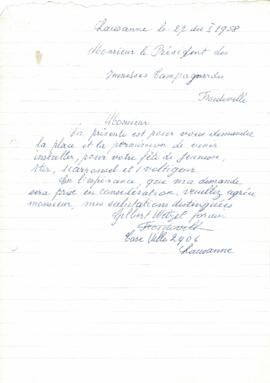 Lausanne le 27 du I 1958
Monsieur le Président des
Jeunesses Campagnardes
Froideville
Monsieur
La présente est pour vous demander
la place et la permission de venir
installer, pour votre fête de Jeunesse,
tir, carrousel et 1 voltigeur
En l'espérance, que ma demande
sera prise en considération, veuillez agréer
monsieur, mes salutations distinguées
Gilbert Wetzel forain
Froideville
Case Ville 2906
Lausanne